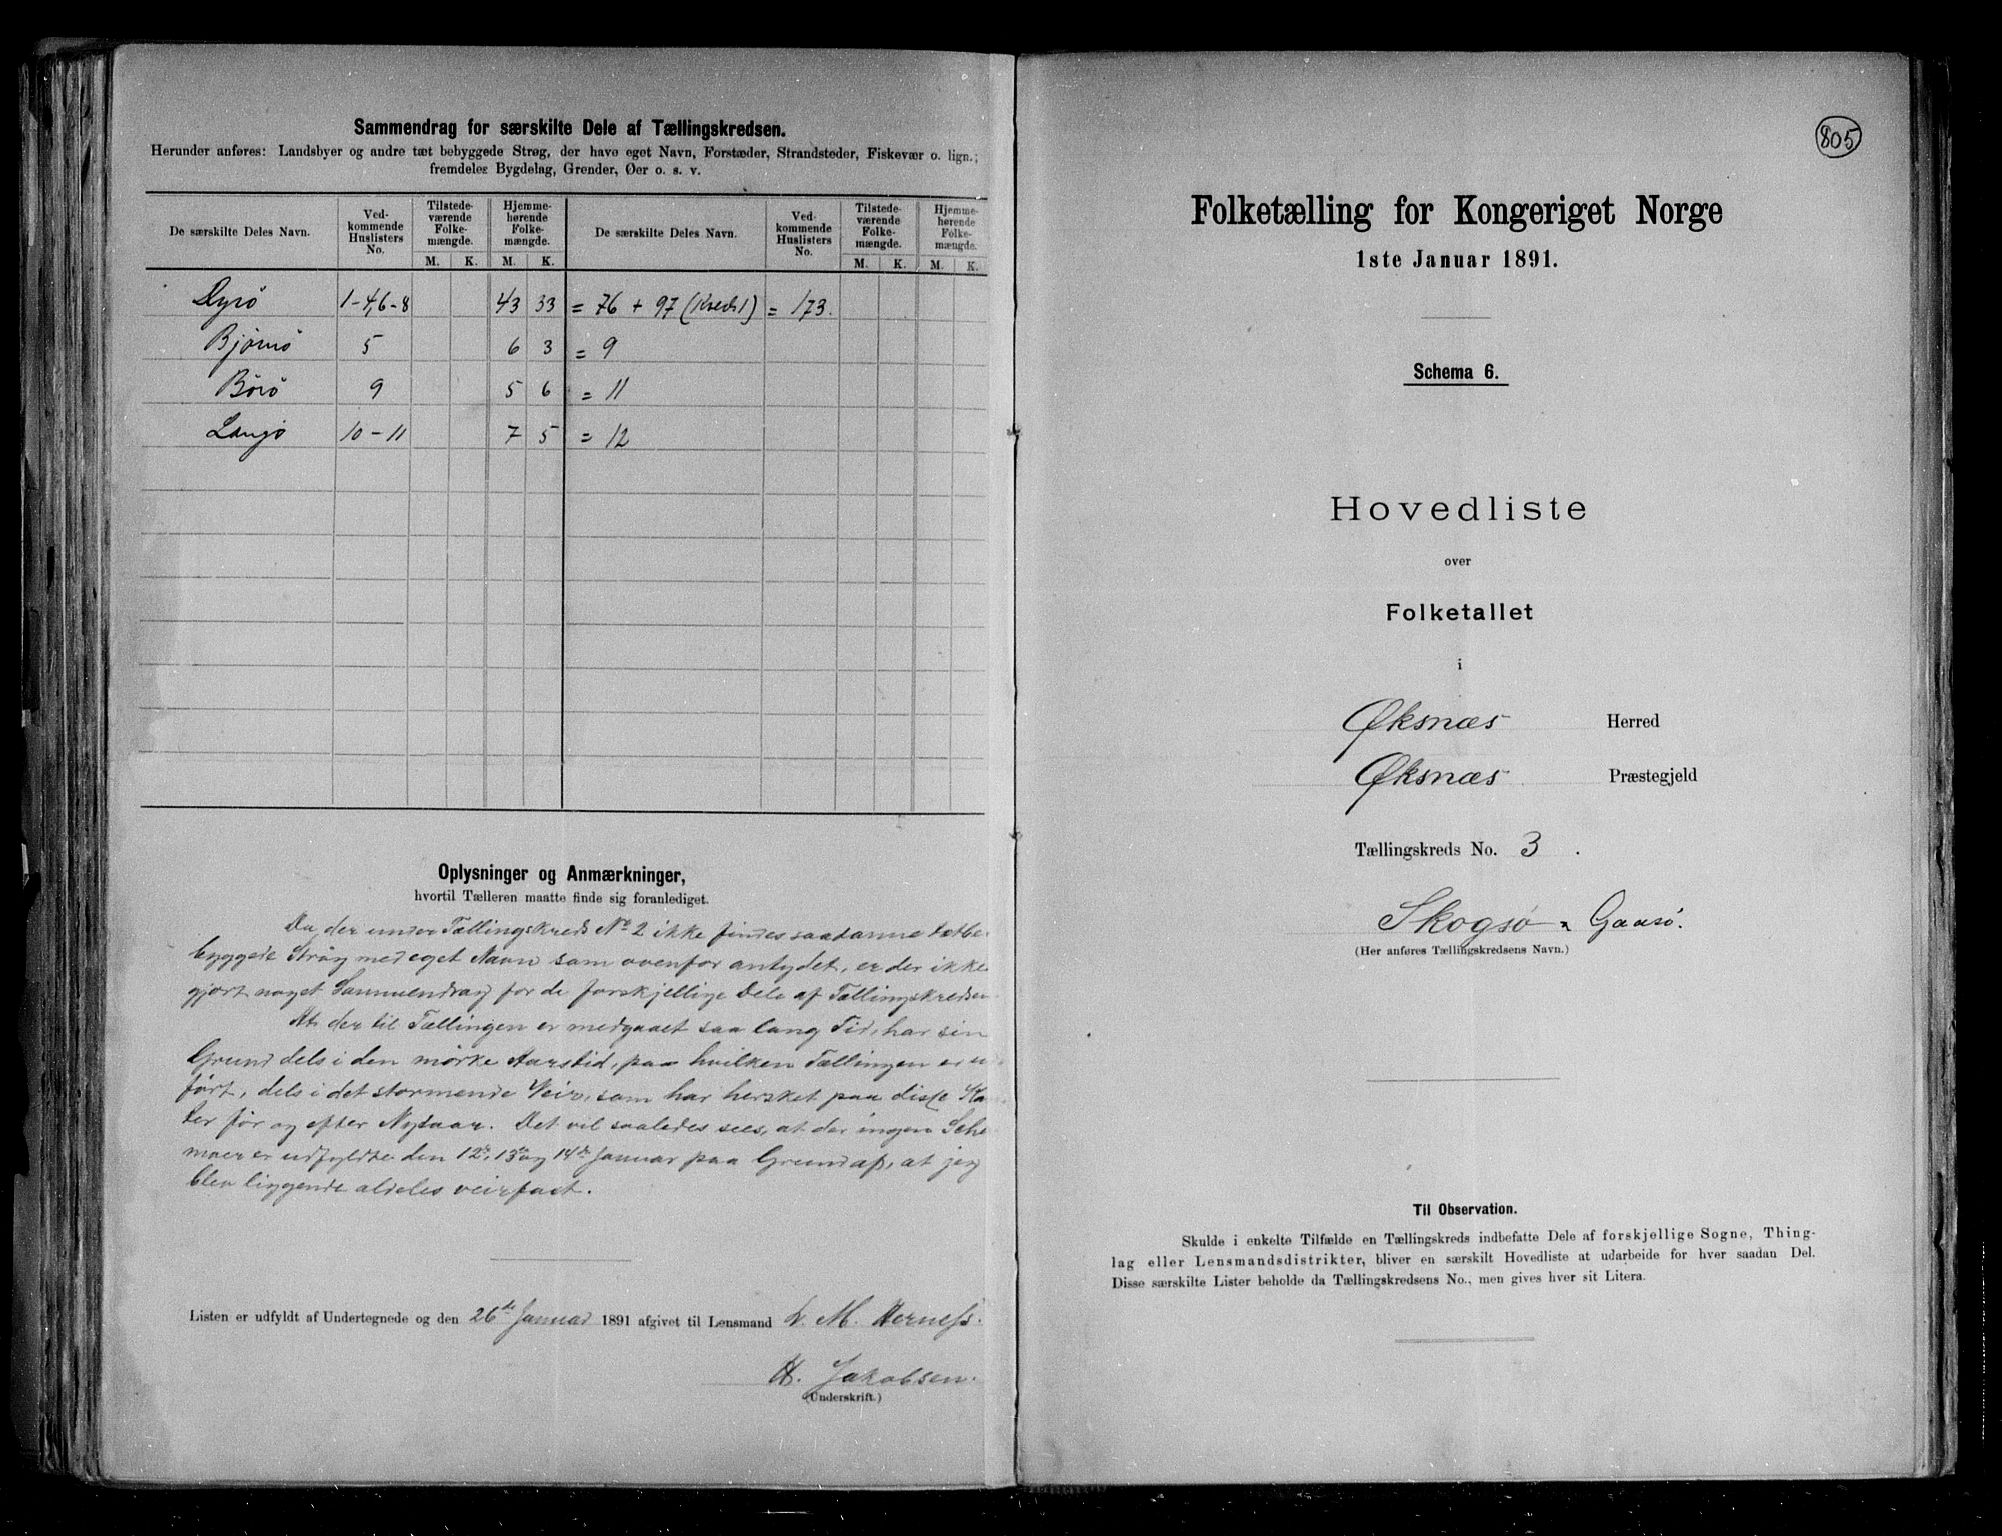 Sammendrag for særskilte Dele af Tællingskredsen.
Herunder anføres: Landsbyer og andre tæt bebyggede Strøg, der have eget Navn, Forstæder, Strandsteder, Fiskevær o. lign.;
fremdeles Bygdelag, Grender, Øer o. s. v.
De særskilte Deles Navn. Ved-kommende Huslisters No. Tilstede-værende Folke-mængde. Hjemme-hørende Folke-mængde. De særskilte Deles Navn. Ved-kommende Huslisters No. Tilstede-værende Folke-mængde. Hjemme-hørende Folke-mængde.
M. K. M. K. M. K. M. K.
Dyrø 1-4,6-8 43 33 = 76 + 97 (Kreds 1) = 173.
Bjørnø 5 6 3 = 9
Börö 9 5 6 = 11
Langö 10-11 7 5 = 12
Oplysninger og Anmærkninger,
hvortil Tælleren maatte finde sig foranlediget.
Da der under Tællingskreds No 2 ikke findes saadanne tætbe-
byggede Strøg med eget Navn som ovenfor antydet, er der ikke
gjort noget Sammendrag for de forskjellige Dele af Tællingskredsen
At der til Tællingen er medgaaet saa lang Tid, har sin
Grund dels i den mørke Aarstid, paa hvilken Tællingen er u
ført, dels i det stormende Veir, som har hersket paa disse
ter før og efter Nytaar. Det vil saaledes sees, at der ingen Sche-
maer er udfyldte den 12te, 13te og 14de Januar paa Grund af, at jeg
blev liggende aldeles veirfast.
Listen er udfyldt af Undertegnede og den 26de Januar 1891 afgivet til Lensmand L. M. Herness.
H. Jakobsen.
(Underskrift.)
805
Folketælling for Kongeriget Norge
1ste Januar 1891.
Schema 6.
Hovedliste
over
Folketallet
i
Øksnæs Herred
Øksnæs Præstegjeld
Tællingskreds No. 3.
Skogsø - Gaasø.
(Her anføres Tællingskredsens Navn.)
Til Observation.
Skulde i enkelte Tilfælde en Tællingskreds indbefatte Dele af forskjellige Sogne, Thing-
lag eller Lensmandsdistrikter, bliver en særskilt Hovedliste at udarbeide for hver saadan Del.
Disse særskilte Lister beholde da Tællingskredsens No., men gives hver sit Litera.